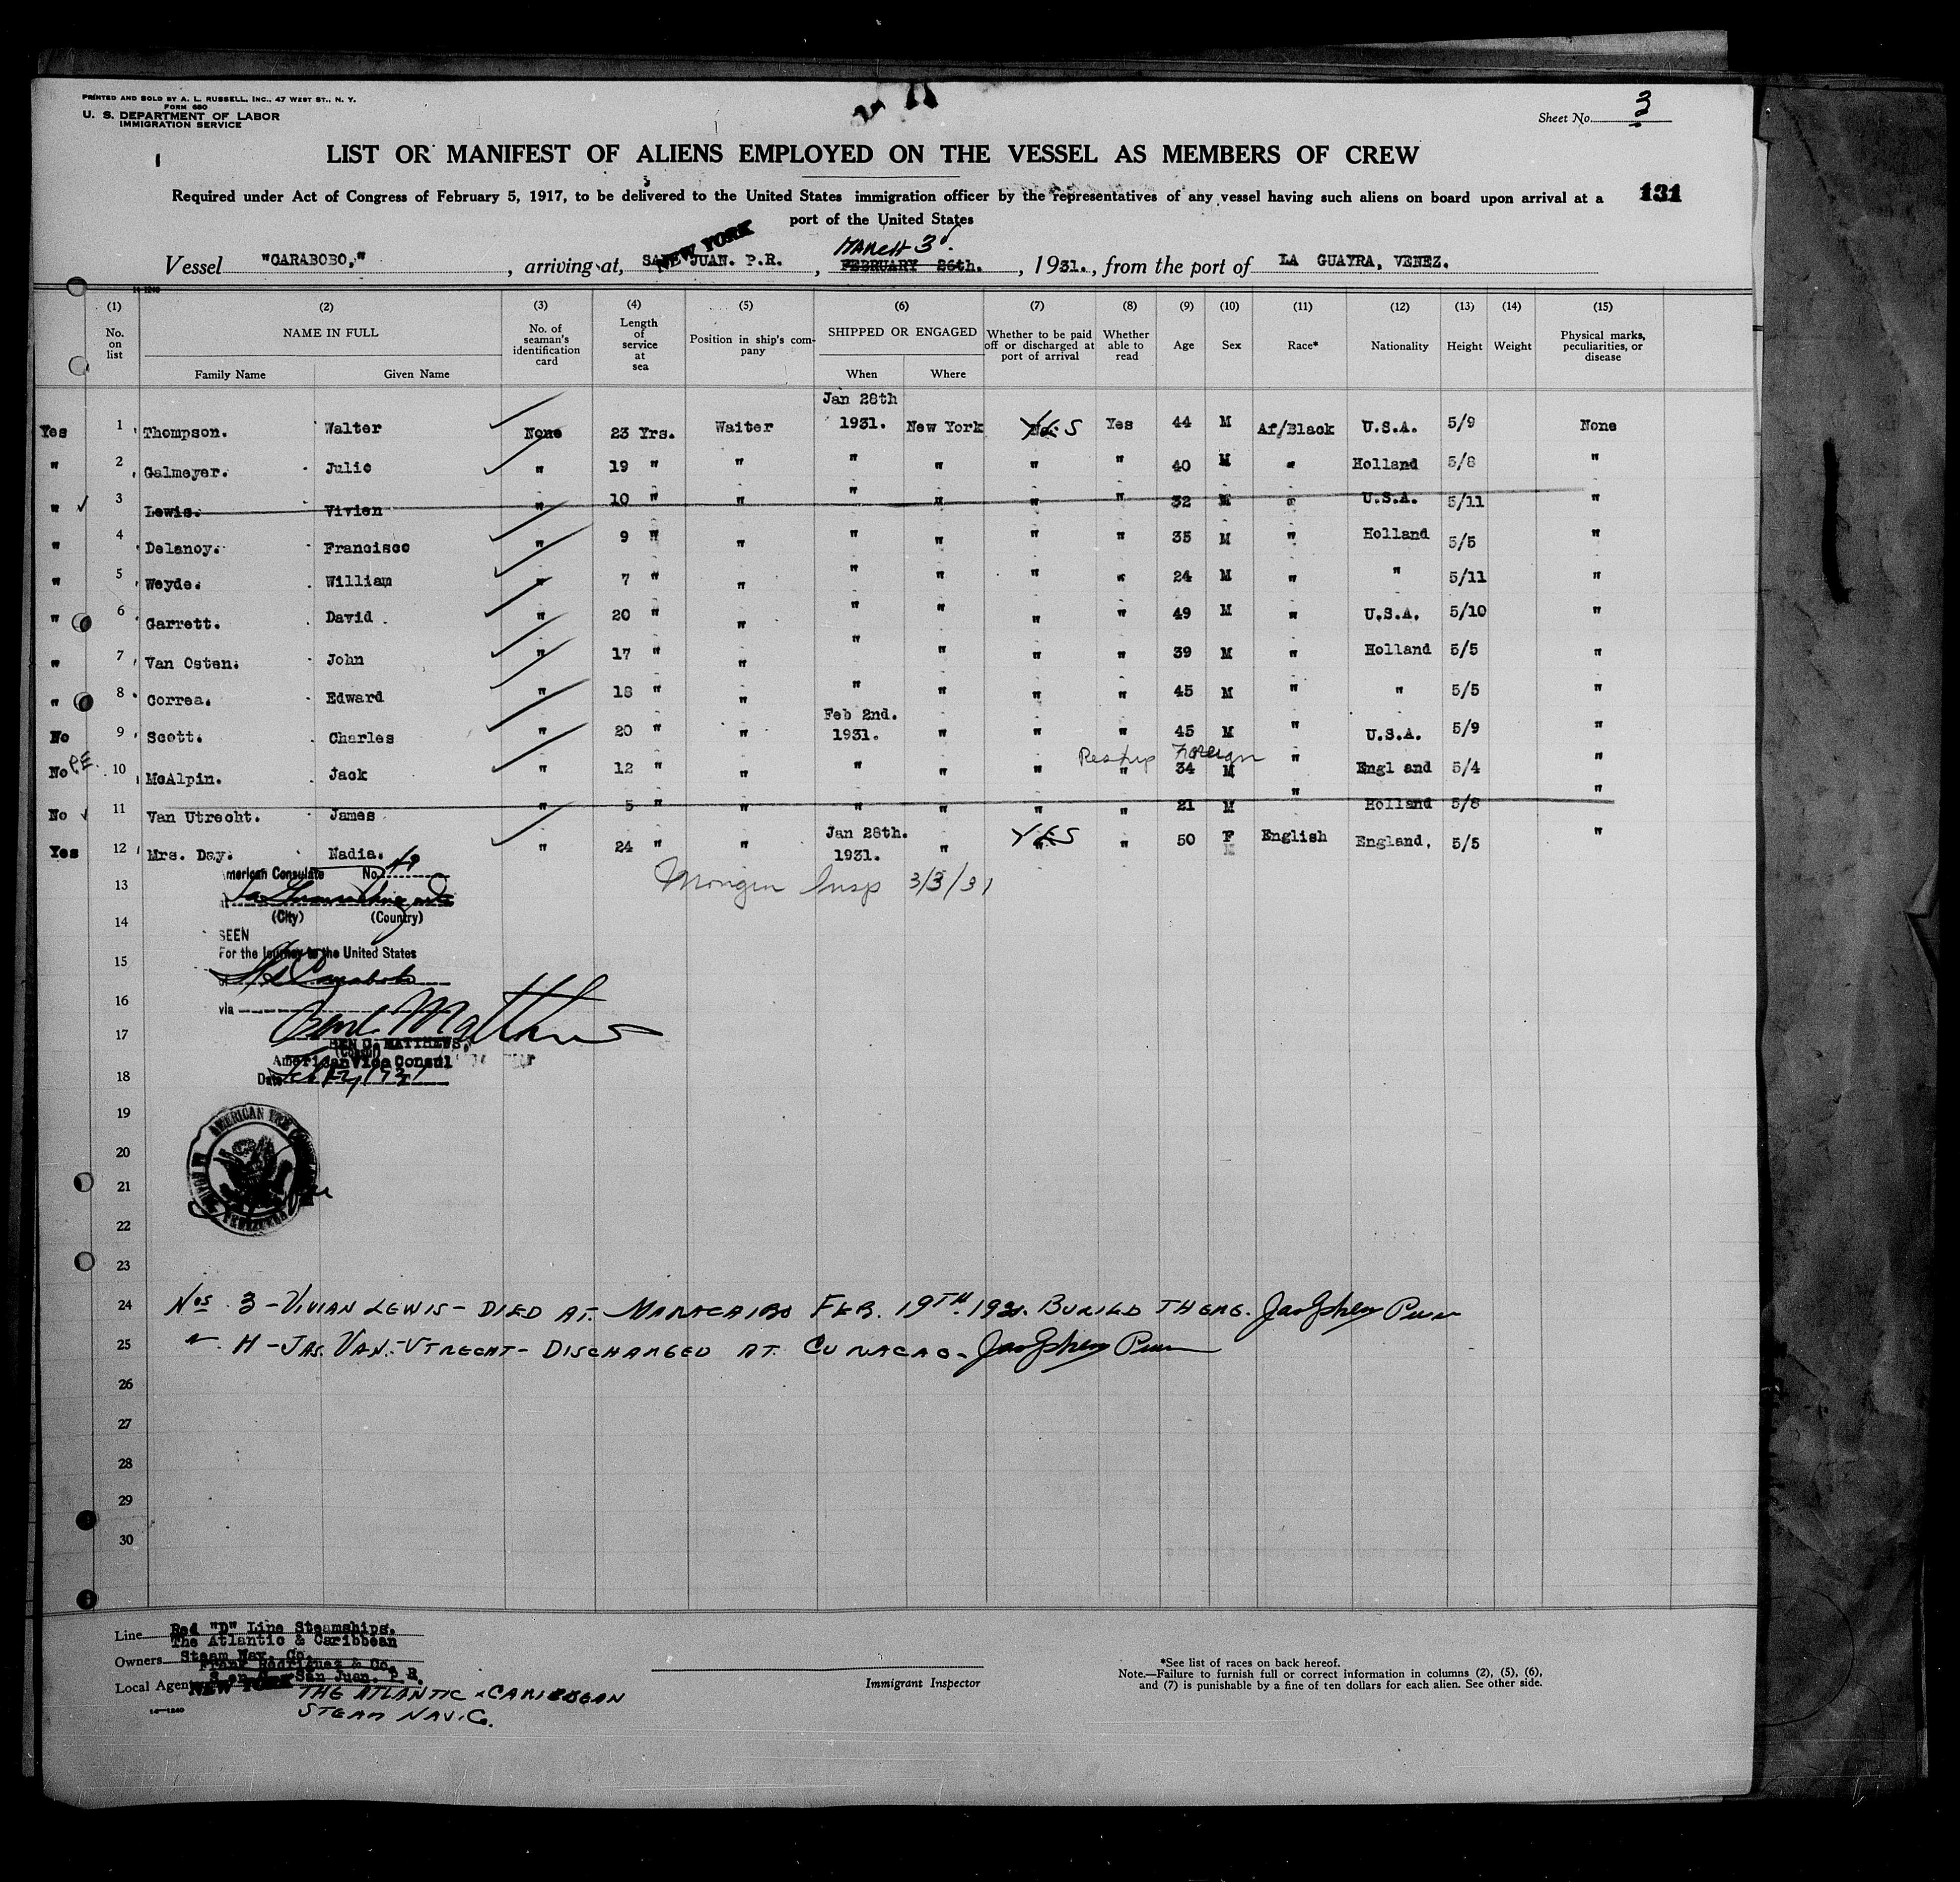 PRINTED AND SOLD BY A. L. RUSSELL, INC., 47 WEST ST., N. Y.
FORM 680
U. S. DEPARTMENT OF LABOR
IMMIGRATION SERVICE
Sheet No. 3
LIST OR MANIFEST OF ALIENS EMPLOYED ON THE VESSEL AS MEMBERS OF CREW
Required under Act of Congress of February 5, 1917, to be delivered to the United States immigration officer by the representatives of any vessel having such aliens on board upon arrival at a
port of the United States
131
Vessel "CARABOBO," , arriving at, SAN JUAN. P.R. NEW YORK , FEBRUARY 26th. MARCH 3d. , 1931. , from the port of LA GUAYRA, VENEZ.
14-1240
(1) (2) (3) (4) (5) (6) (7) (8) (9) (10) (11) (12) (13) (14) (15)
No. on list NAME IN FULL Family Name Given Name No. of seaman's identification card Length of service at sea Position in ship's company SHIPPED OR ENGAGED When Where Whether to be paid off or discharged at port of arrival Whether able to read Age Sex Race* Nationality Height Weight Physical marks, peculiarities, or disease
Jan 28th
Yes 1 Thompson. Walter None 23 Yrs. Waiter 1931. New York No. YES Yes 44 M Af/Black U.S.A. 5/9 None
" 2 Galmeyer. Julio " 19 " " " " " " 40 M " Holland 5/8 "
" 3 Lewis. Vivien " 10 " " " " " " 32 M " U.S.A. 5/11 "
" 4 Delanoy. Francisco " 9 " " " " " " 35 M " Holland 5/5 "
" 5 Weyde. William " 7 " " " " " " 24 M " " 5/11 "
" 6 Garrett. David " 20 " " " " " " 49 M " U.S.A. 5/10 "
" 7 Van Osten. John " 17 " " " " " " 39 M " Holland 5/5 "
" 8 Correa. Edward " 18 " " " " " " 45 M " " 5/5 "
Feb 2nd.
No 9 Scott. Charles " 20 " " 1931. " " " 45 M " U.S.A. 5/9 "
Reship Foreign
No P.E. 10 McAlpin. Jack " 12 " " " " " " 34 M " Engl and 5/4 "
No 11 Van Utrecht. James " 5 " " " " " " 21 M " Holland 5/8 "
Jan 28th. YES
Yes 12 Mrs. Day. Nadia. " 24 " " 1931. " " " 50 F English England. 5/5 "
American Consulate No.
13
(City) (Country)
14
SEEN
For the Journey to the United States
15
Insp 3/3/31
16
via
17
BEN C. MATTHEWS,
(Consul)
American Vice Consul
18
Date
19
20
21
22
23
24 Nos 3 - VIVIAN LEWIS - DIED AT. MARACAIBO FEB. 19TH. 1931. BURIED THERE.
25 " 11 - JAS. VAN-UTRECHT - DISCHARGED AT CURACAO -
26
27
28
29
30
Line Red "D" Line Steamships.
The Atlantic & Caribbean
Owners Steam Nav. Co.
Frank Rodriguez & Co.
Local Agent S en C. San Juan. P R.
NEW YORK THE ATLANTIC & CARIBBEAN
STEAM NAV. Co.
14-1240
Immigrant Inspector
*See list of races on back hereof.
Note.—Failure to furnish full or correct information in columns (2), (5), (6),
and (7) is punishable by a fine of ten dollars for each alien. See other side.